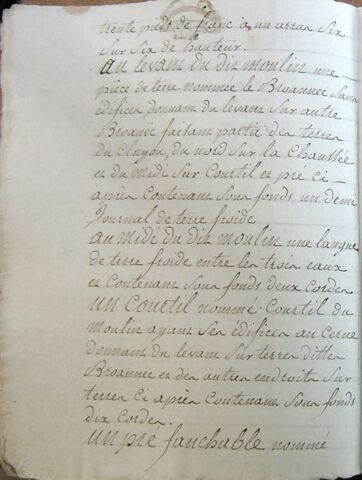 trente pieds de franc a un arran six
sur six de hauteur.
au levant du dit moulin une
piece de terre nommée le Broannec sans
édifices donnant du levant sur autre
Broannec faisant partie des terres
du Cluyou, du nord sur la Chaussée
et du midi sur Courtil et pré ci
apres Contenant sous fonds un demi
Journal de terre froide
au midi du dit moulin une langue
de terre froide entre les trois eaux
et Contenant sous fonds deux Cordes
un Courtil nommé Courtil du
moulin ayant ses édifices au Cerne
donnant du levant sur terres dittes
Broannec et des autres endroits sur
terres Ci apres Contenant sous fonds
dix Cordes.
un pré fauchable nommé